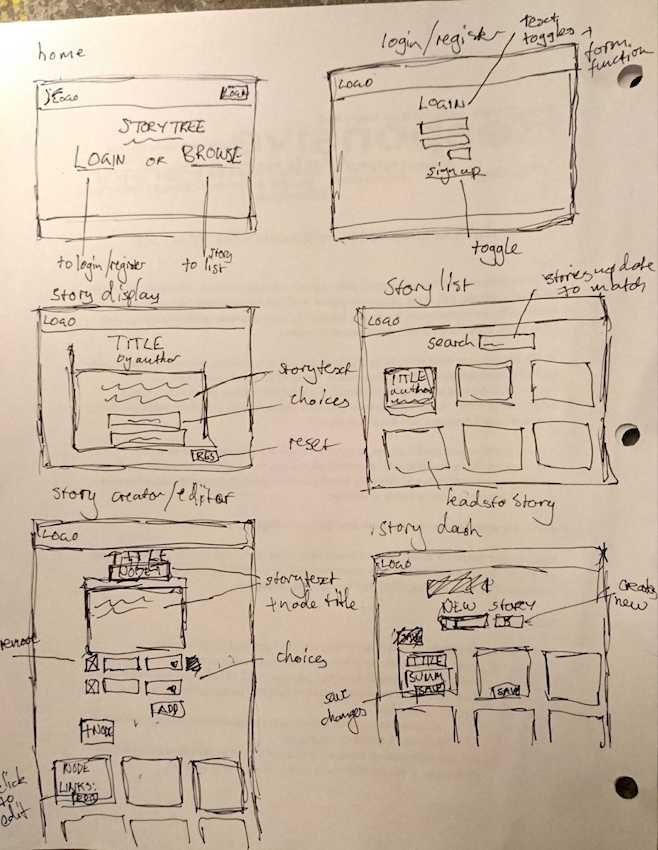 home
LOGO
LOGIN
STORYTREE
LOGIN OR BROWSE
to login/register
to story list
login/register
text toggles + form function
LOGO
LOGIN
sign up
toggle
story display
LOGO
TITLE
by author
story text
choices
reset
RES
Story list
stories update to match
LOGO
search
TITLE
author
leads to story
story creator/editor
LOGO
TITLE
story text
+ node title
remove
choices
ADD
+NODE
NODE
LINKS:
click to edit
story dash
LOGO
NEW STORY
creates new
TITLE
SUMM
SAVE
SAVE
save changes